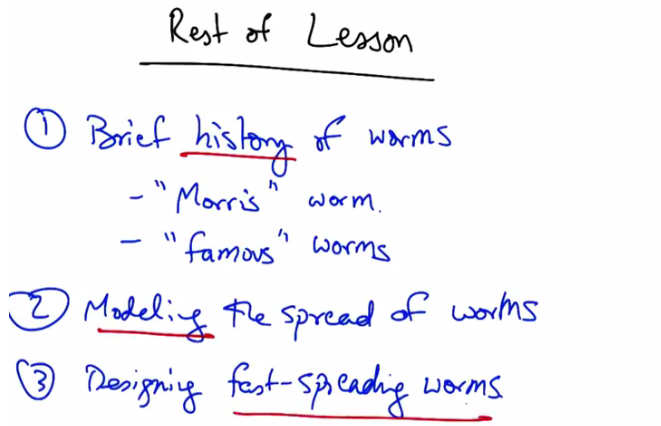 Rest of Lesson
① Brief history of worms
- "Morris" worm.
- "famous" worms
② Modeling the spread of worms
③ Designing fast-spreading worms